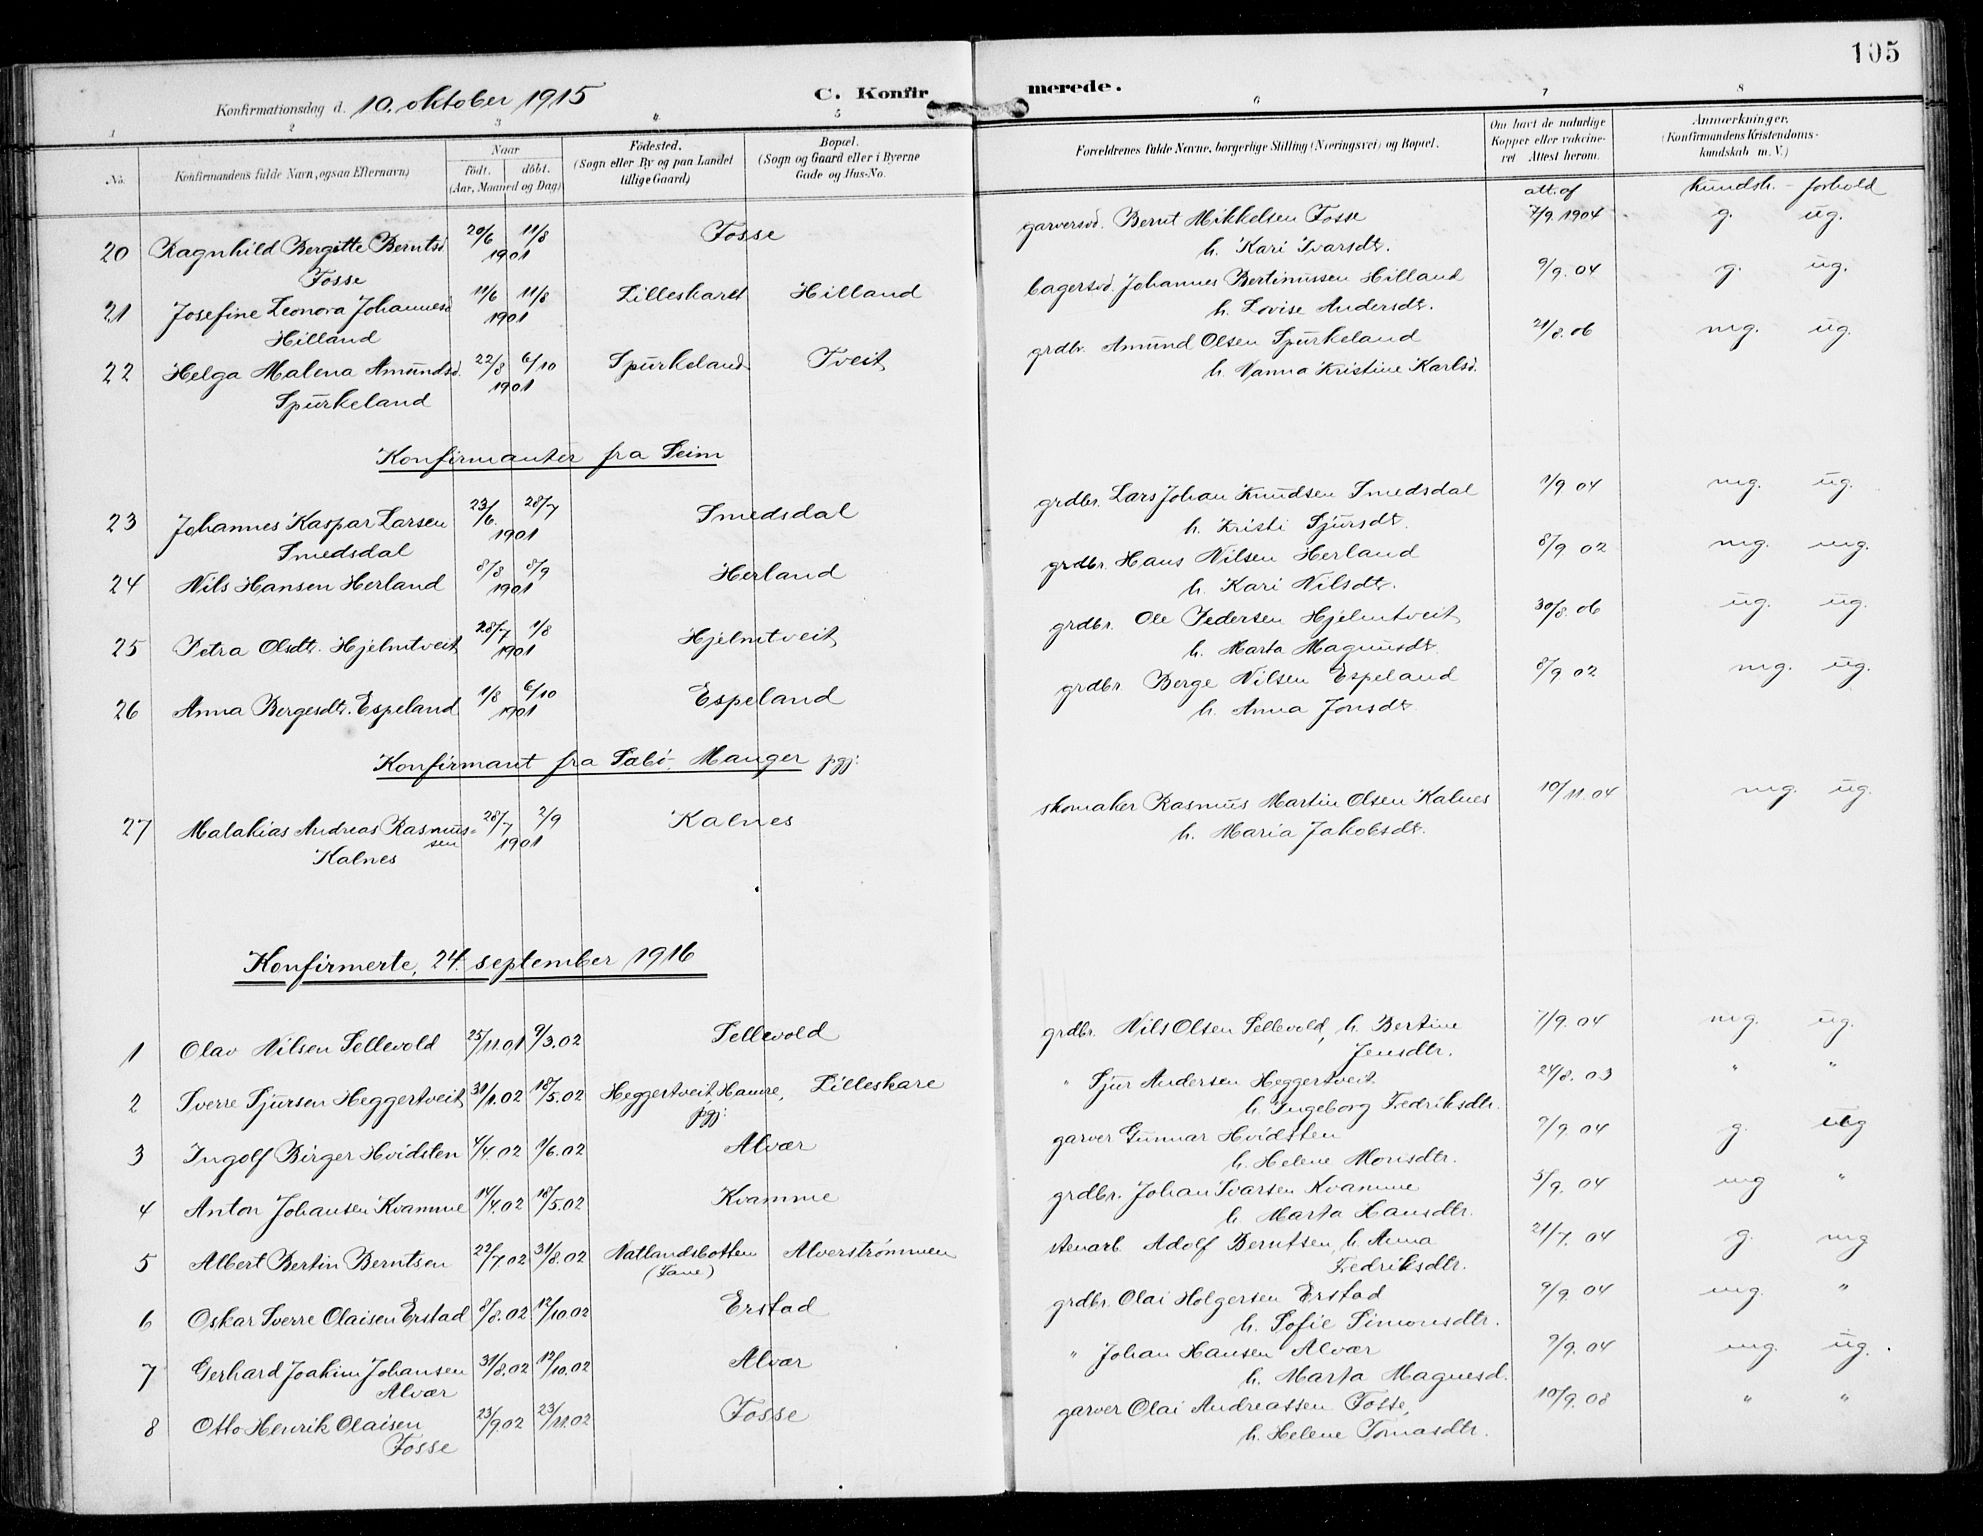 105
Konfirmationsdag d. 10. oktober 1915
C. Konfirmerede.
1 2 3 4 5 6 7 8
No. Konfirmandens fulde Navn, ogsaa Efternavn) Naar født. døbt. (Aar, Maaned og Dag) Fødested. (Sogn eller By og paa Landet tillige Gaard) Bopæl. (Sogn og Gaard eller i Byerne Gade og Hus-No. Forældrenes fulde Navne, borgerlige Stilling (Næringsvei) og Bopæl. Om havt de naturlige Kopper eller vakcineret Attest herom. Anmærkninger. (Konfirmandens Kristendomskundskab m. V.)
att. af kundsk. - forhold
20 Ragnhild Bergitte Berntsd 20/6 11/8 Fosse garversv. Bernt Mikkelsen Fosse 7/9 1904 g. ug.
Fosse 1901 h. Kari Ivarsdt.
21 Josefine Leonora Johannesd 11/6 11/8 Lilleskaret Hilland bagersv. Johannes Bertinussen Hilland 9/9. 04 g. ug.
Hilland 1901 h. Lovise Andersdt.
22 Helga Malena Amundsd. 22/8 6/10 Spurkeland Tveit grdbr. Amund Olsen Spurkeland 21/8. 06 mg. ug.
Spurkeland 1901 h. Vanna Kristine Karlsd.
Konfirmanter fra Seim
23 Johannes Kaspar Larsen 23/6. 28/7 Smedsdal grdbr. Lars Johan Knudsen Smedsdal 1/9 04 mg. ug.
Smedsdal 1901 h. Kristi Sjursdt.
24 Nils Hansen Herland 8/8 8/9 Herland grdbr. Hans Nilsen Herland 8/9 02 mg. mg.
1901 h. Kari Nilsdt.
25 Petra Olsdt. Hjelmtveit 28/7 1/8 Hjelmtveit grdbr. Ole Pedersen Hjelmtveit 30/8. 06 ug. ug.
1901 h. Marta Magnusdt.
26 Anna Bergesdt. Espeland 1/8 6/10 Espeland grdbr. Berge Nilsen Espeland 8/9 02 mg. ug.
1901 h. Anna Jonsdt.
Konfirmant fra Sæbø, Manger pgj:
27 Malakias Andreas Rasmus- 28/7 2/9 Kalnes skomaker Rasmus Martin Olsen Kalnes 10/11. 04 mg. ug.
sen Kalnes 1901 h. Maria Jakobsdt.
Konfirmerte, 24. september 1916
1 Olav Nilsen Sellevold 25/11.01 9/3.02 Sellevold grdbr. Nils Olsen Sellevold, h. Bertine 7/9. 04 mg. ug.
Jensdtr.
2 Sverre Sjursen Heggertveit 31/1.02 18/5.02 Heggertveit, Hamre, Lilleskare " Sjur Andersen Heggertveit 24/8. 03 " "
pgj: h. Ingeborg Fredriksdtr.
3 Ingolf Birger Hvidsten 4/4.02 1/6.02 Alvær garver Gunnar Hvidsten 9/9. 04 g. ug
h. Helene Monsdtr.
4 Anton Johansen Kvamme 14/4.02 18/5.02 Kvamme grdbr. Johan Ivarsen Kvamme 5/9. 04 mg "
h. Marta Hansdtr.
5 Albert Bertin Berntsen 22/7.02 31/8.02 Natlandsbotten Alverstrømmen stenarb. Adolf Berntsen, h. Anna 21/7. 04 g. mg
(Fane) Fredriksdtr.
6 Oskar Sverre Olaisen Erstad 8/8.02 12/10.02 Erstad grdbr. Olai Holgersen Erstad 9/9. 04 mg. "
h. Sofie Simonsdtr.
7 Gerhard Joakim Johansen 31/8.02 12/10.02 Alvær " Johan Hansen Alvær 9/9. 04 mg. ug.
Alvær h. Marta Magnesd.
8 Otto Henrik Olaisen 23/9.02 23/11.02 Fosse garver Olai Andreassen Fosse, 10/9. 08 " "
Fosse h. Helene Tomasdtr.